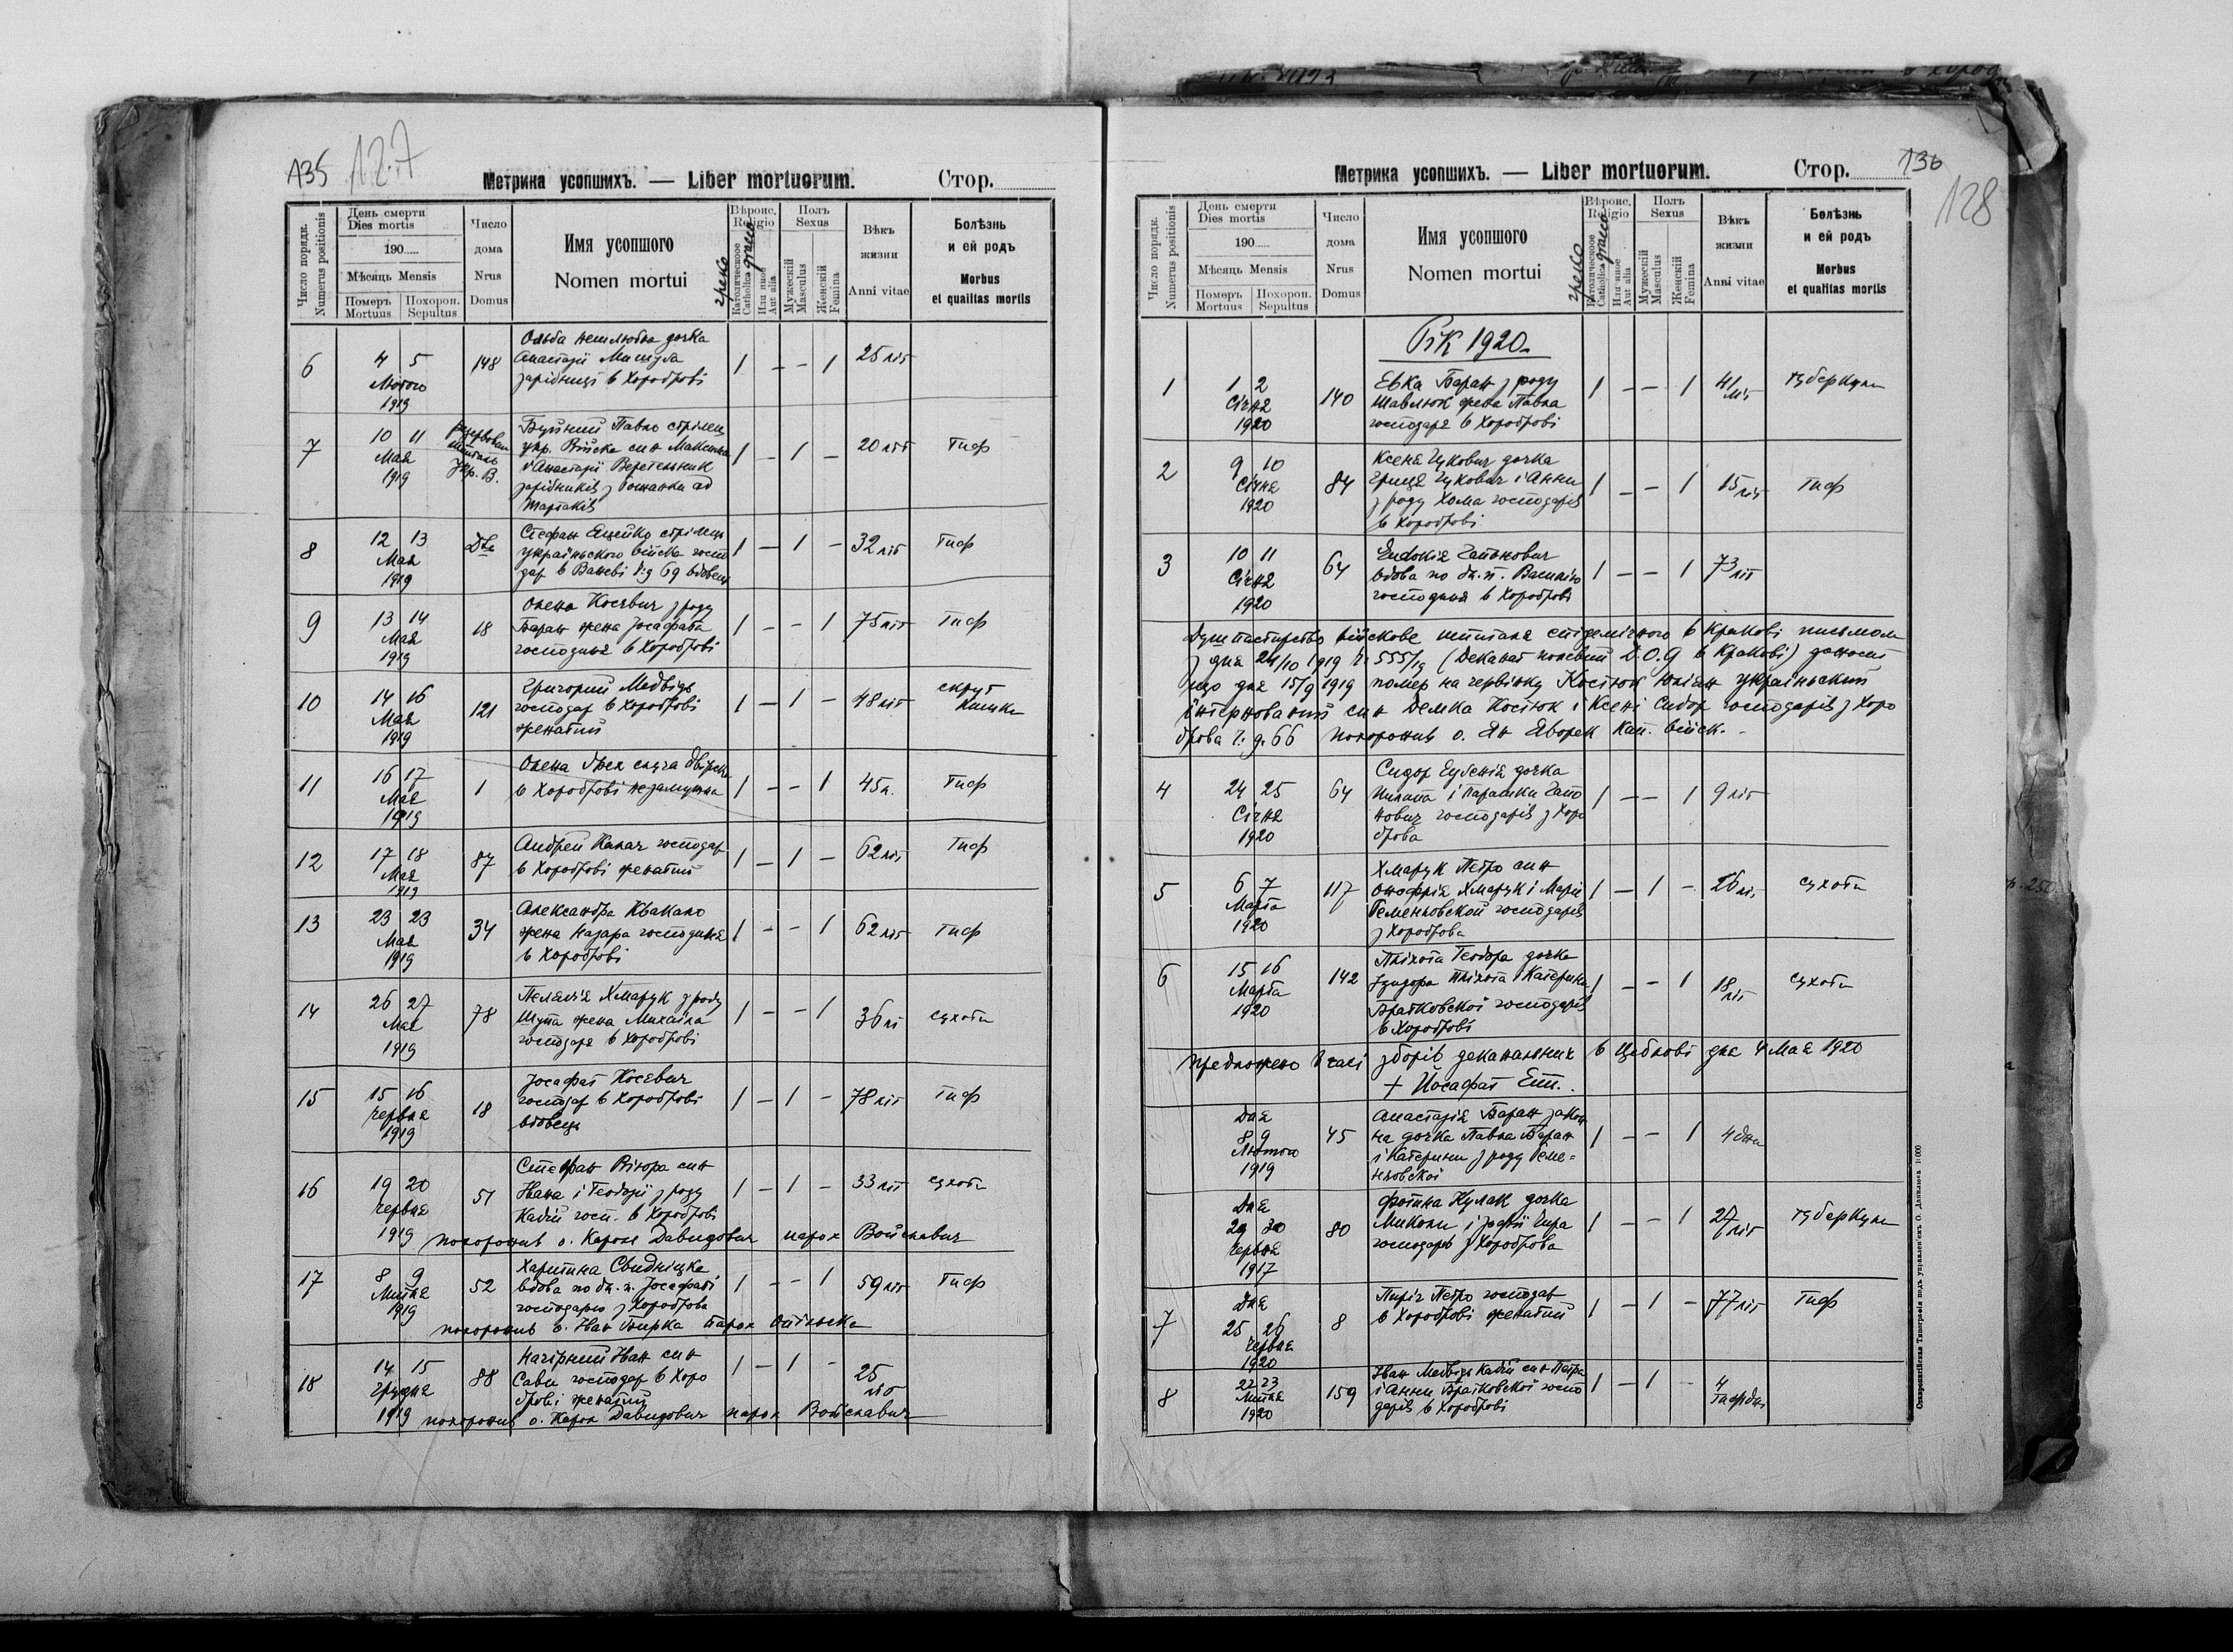 135 127
Метрика усопшихъ. — Liber mortuorum. Стор.
Число порядк.
Numerus positionis
День смерти
Dies mortis
190
Мѣсяць Mensis
Померъ Mortuus
Похорон. Sepultus
Число дома
Nrus Domus
Имя усопшого
Nomen mortui
Вѣроис. Religio
греко
Католическоое
Catholica graeca
Или иное
Aut alia
Полъ Sexus
Мужескій Masculus
Женскій Femina
Вѣкъ жизни
Anni vitae
Болѣзнь и ей родъ
Morbus et qualitas mortis
6 4 5 148 Ольба дочка 1 - - 1 25 літ
Лютого Анастазії
1919 зарібниці в Хороброві
7 10 11 Буйний Павло стрілец 1 - 1 - 20 літ Тиф
Мая Укр. В. укр. Війска син Максима
1919 і Анастазії Веретельник
зарібників з ад
Тартаків
8 12 13 Dto Стефан Яцейко стрілець 1 - 1 - 32 літ Тиф
Мая украінського війска госпо
1919 дар в Ваневі ч: д 69 вдовець
9 13 14 18 Олена Косевич з роду 1 - - 1 75 літ Тиф
Мая Баран жена Йосафата
1919 господиня в Хороброві
10 14 16 121 Григорий Медвідь 1 - 1 - 48 літ скрут
Мая господар в Хороброві кишки
1919 женатий
11 16 17 1 Олена слуга двірска 1 - - 1 45 л. Тиф
Мая в Хороброві незамужна
1919
12 17 18 87 Андрей Калач господар 1 - 1 - 62 літ Тиф
Мая в Хороброві женатий
1919
13 23 23 34 Александра Квакало 1 - - 1 62 літ Тиф
Мая жена Назара господиня
1919 в Хороброві
14 26 27 78 Пелагія Хмарук з роду 1 - - 1 36 лі сухоти
Мая Шупа жена Михаіла
1919 господаря в Хороброві
15 15 16 18 Йосафат Косевич 1 - 1 - 78 літ Тиф
червня господар в Хороброві
1919 вдовець
16 19 20 51 Стефан Вітора син 1 - 1 - 33 літ сухоти
червня Івана і Теодозії з роду
Кадій госп. в Хороброві
1919 похоронив о. Кароль Давидович парох Войславич
17 8 9 52 Харитина Свидніцка 1 - - 1 59 літ Тиф
Липня вдова по бл. п. Йосафаті
1919 господарю з Хороброва
похоронив о. Іван парох
18 14 15 88 Начірний Іван син 1 - 1 - 25
Грудня Сави господар в Хоро літ
брові женатий
1919 похоронив о. Кароль Давидович парох Войславич
136
128
Метрика усопшихъ. — Liber mortuorum. Стор.
Число порядк.
Numerus positionis
День смерти
Dies mortis
190
Мѣсяць Mensis
Померъ Mortuus
Похорон. Sepultus
Число дома
Nrus Domus
Имя усопшого
Nomen mortui
Вѣроис. Religio
греко
Католическоое
Catholica graeca
Или иное
Aut alia
Полъ Sexus
Мужескій Masculus
Женскій Femina
Вѣкъ жизни
Anni vitae
Болѣзнь и ей родъ
Morbus et qualitas mortis
Рік 1920.
1 1 2 140 Евка Баран з роду 1 - - 1 41 туберкули
Січня Шавлюк жена Павла літ
1920 господаря в Хороброві
2 9 10 84 Ксеня Цукович дочка 1 - - 1 15 літ Тиф
Січня Гриця Цукович і Анни
1920 з роду Хома господарів
в Хороброві
3 10 11 64 Евдокія Гапонович 1 - - 1 73 літ
Січня вдова по бл. п. Василію
1920 господиня в Хороброві
Душпастирство військове шпиталя епідемічного в Кракові письмом
з дня 24/10 1919 ч. 555/19 (Деканат полевий D.O.G в Кракові) доносит
що дня 15/9 1919 помер на червінку Костюк Юліан украінський
інтернований син Демка Костюк і Ксені Сидор господарів з Хоро
брова ч: д. 66 похоронив о. Ян Яворек кап. війск.
4 24 25 64 Сидор Евгенія дочка 1 - - 1 9 літ
Січня Пилипа і Парашки Гапо
1920 нович господарів з Хоро
брова
5 6 7 117 Хмарук Петро син 1 - 1 - 26 літ сухоти
Марта Онофрія Хмарук і Марії
1920 Геменховскої господарів
з Хороброва
6 15 16 142 Пліхота Теодора дочка 1 - - 1 18 сухоти
Марта Ізидора Пліхота і Катерини літ
1920 Братковскої господарів
в Хороброві
предложено в часі зборів деканальних в Цеблові дня 4 Мая 1920
+ Йосафат Еп.
Дня 45 Анастазія Баран закон 1 - - 1 4 дни
8 9 на дочка Павла Баран
Лютого і Катерини з роду Геме=
1919 нховскої
Дня 80 Фотина Кулак дочка 1 - - 1 27 туберкули
29 30 Миколи і Зофії Гира літ
червня господарів з Хороброва
1917
7 Дня 8 Пиріг Петро господар 1 - 1 - 77 літ Тиф
25 26 в Хороброві женатий
червня
1920
8 22 23 159 Іван Медвідь Кадій син Петра 1 - 1 - 4
Липня і Анни Братковскої госпо
1920 дарів в Хороброві
Ставропигійская Типографія подъ управленіемъ О. Данилюка 1·000